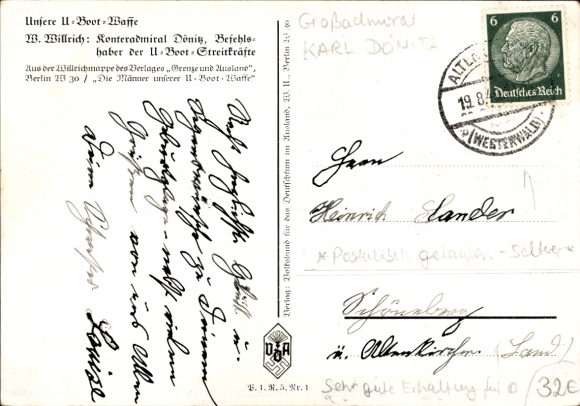 Unsere U-Boot-Waffe
W. Willrich: Konteradmiral Dönitz, Befehls-
haber der U-Boot-Streitkräfte
Aus der Willrichmappe des Verlages „Grenze und Ausland",
Berlin W 30 / „Die Männer unserer U-Boot-Waffe"
Großadmiral
KARL DÖNITZ
6 6
Deutsches Reich
19.8.
(WESTERWALD)
Verlag: Volksbund für das Deutschtum im Ausland, W. U., Berlin W 30
Recht herzliche Grüße u.
zu Deinem
Geburtstag
von uns Allen
Dein
Louise
Herrn
Heinrich Sander
*Postalisch gelaufen - Selten*
Schöneberg
ü. Altenkirchen (Land)
VDA
P. 1. R. 5. Nr. 1
Sehr gute Erhaltung
32€